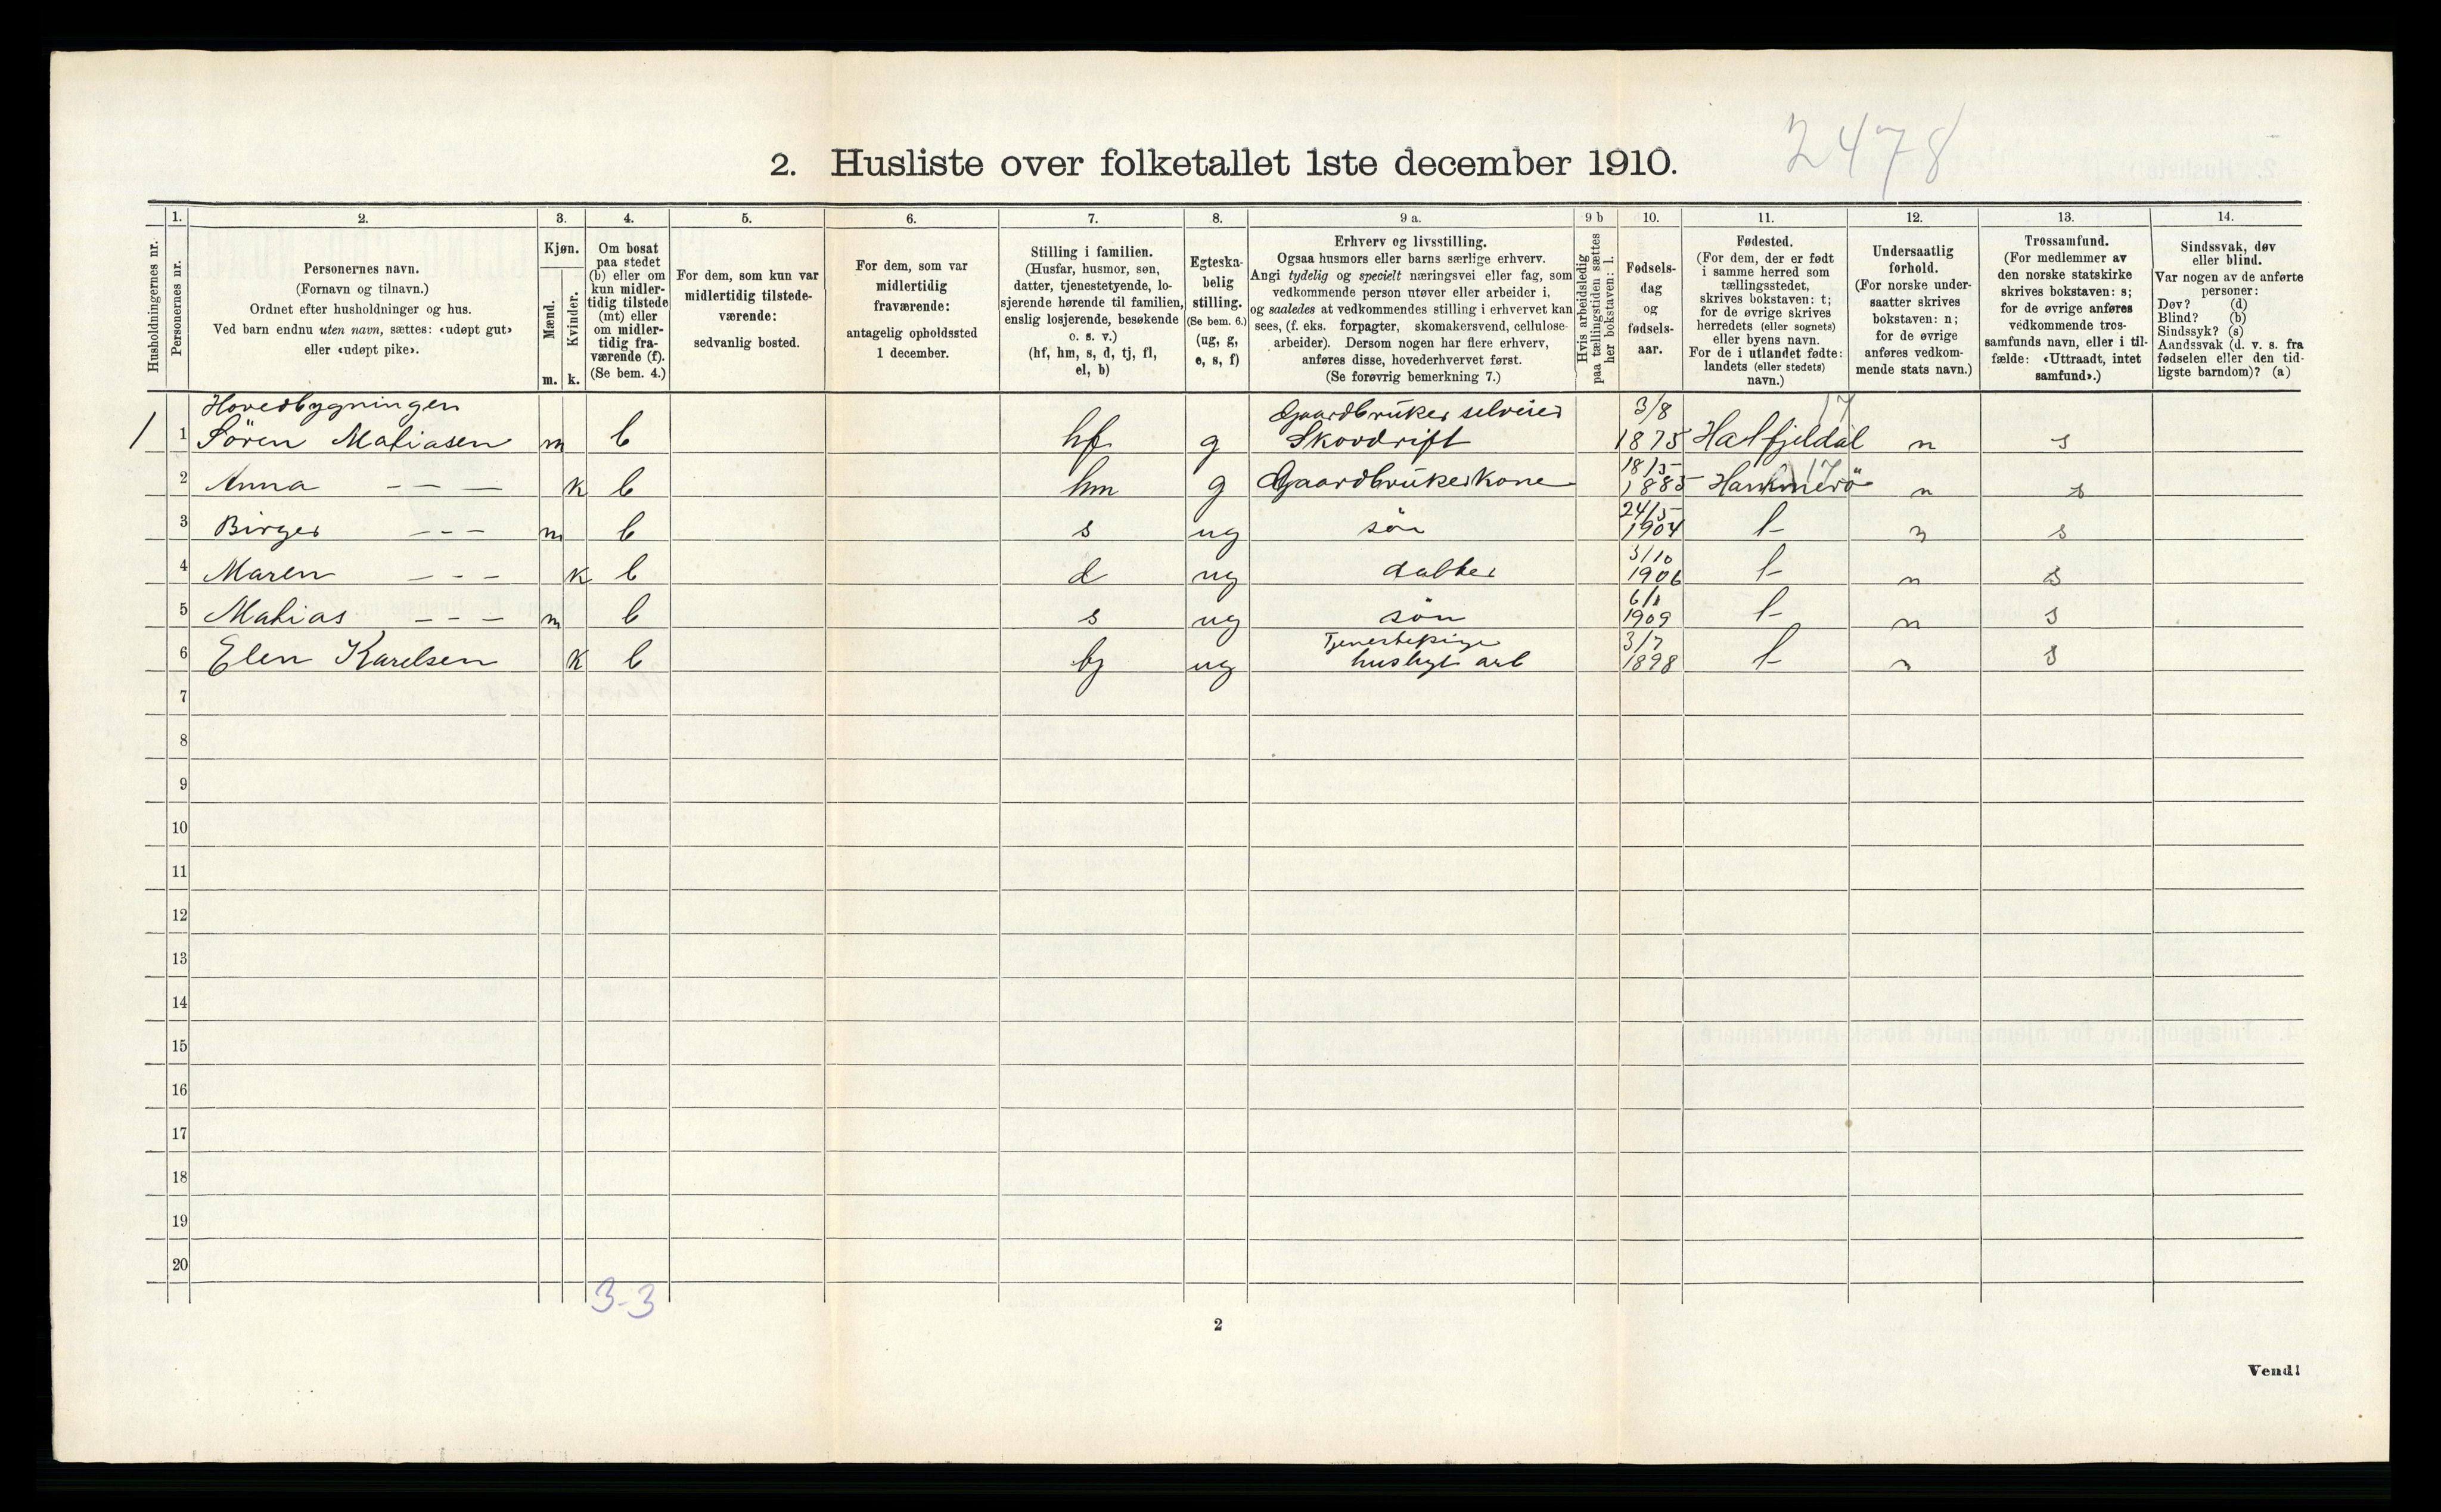 2478
2. Husliste over folketallet 1ste december 1910.
Husholdningernes nr.
1.
Personernes nr.
2.
Personernes navn.
(Fornavn og tilnavn.)
Ordnet efter husholdninger og hus.
Ved barn endnu uten navn, sættes: «udøpt gut»
eller «udøpt pike».
3.
Kjøn.
Mænd.
m.
Kvinder.
k.
4.
Om bosat
paa stedet
(b) eller om
kun midler-
tidig tilstede
(mt) eller
om midler-
tidig fra-
værende (f).
(Se bem. 4.)
5.
For dem, som kun var
midlertidig tilstede-
værende:
sedvanlig bosted.
6.
For dem, som var
midlertidig
fraværende:
antagelig opholdssted
1 december.
7.
Stilling i familien.
(Husfar, husmor, søn,
datter, tjenestetyende, lo-
sjerende hørende til familien,
enslig losjerende, besøkende
o. s. v.)
(hf, hm, s, d, tj, fl,
el, b)
8.
Egteska-
belig
stilling.
(Se bem. 6.)
(ug, g,
e, s, f)
9 a.
Erhverv og livsstilling.
Ogsaa husmors eller barns særlige erhverv.
Angi tydelig og specielt næringsvei eller fag, som
vedkommende person utøver eller arbeider i,
og saaledes at vedkommendes stilling i erhvervet kan
sees, (f. eks. forpagter, skomakersvend, cellulose-
arbeider). Dersom nogen har flere erhverv,
anføres disse, hovederhvervet først.
(Se forøvrig bemerkning 7.)
9 b
Hvis arbeidsledig
paa tællingstiden sættes
her bokstaven: l.
10.
Fødsels-
dag
og
fødsels-
aar.
11.
Fødested.
(For dem, der er født
i samme herred som
tællingsstedet,
skrives bokstaven: t;
for de øvrige skrives
herredets (eller sognets)
eller byens navn.
For de i utlandet fødte:
landets (eller stedets)
navn.)
12.
Undersaatlig
forhold.
(For norske under-
saatter skrives
bokstaven: n;
for de øvrige
anføres vedkom-
mende stats navn.)
13.
Trossamfund.
(For medlemmer av
den norske statskirke
skrives bokstaven: s;
for de øvrige anføres
vedkommende tros-
samfunds navn, eller i til-
fælde: «Uttraadt, intet
samfund».)
14.
Sindssvak, døv
eller blind.
Var nogen av de anførte
personer:
Døv? (d)
Blind? (b)
Sindssyk? (s)
Aandssvak (d. v. s. fra
fødselen eller den tid-
ligste barndom)? (a)
Hovedbygningen Gaardbruker selveier 3/8 17
1 1 Sören Matiasen m b hf g Skovdrift 1875 Hatfjeldal n s
18/5 17
2 Anna - - - k b hm g Gaardbrukerkone 1885 n s
24/5
3 Birger - - - m b s ug sön 1904 t n s
3/10
4 Maren - - - k b d ug datter 1906 t n s
6/1
5 Matias - - - m b s ug sön 1909 t n s
Tjenestepige 3/7
6 Elen Karelsen k b tj ug husligt arb 1898 t n s
7
8
9
10
11
12
13
14
15
16
17
18
19
20
3-3
2
Vend!